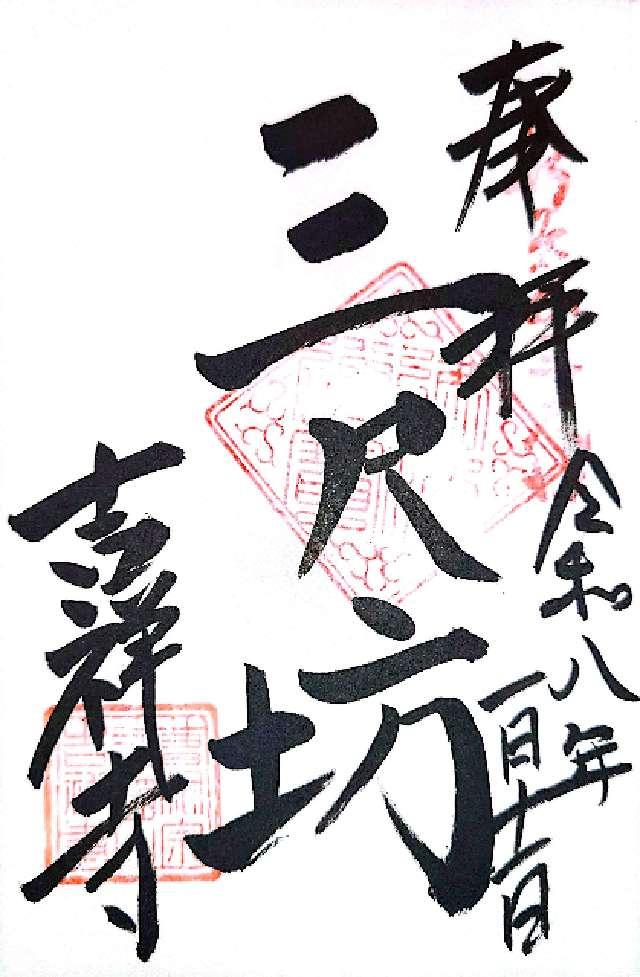 奉拝
令和八年
一月十一日
三尺坊
吉祥寺